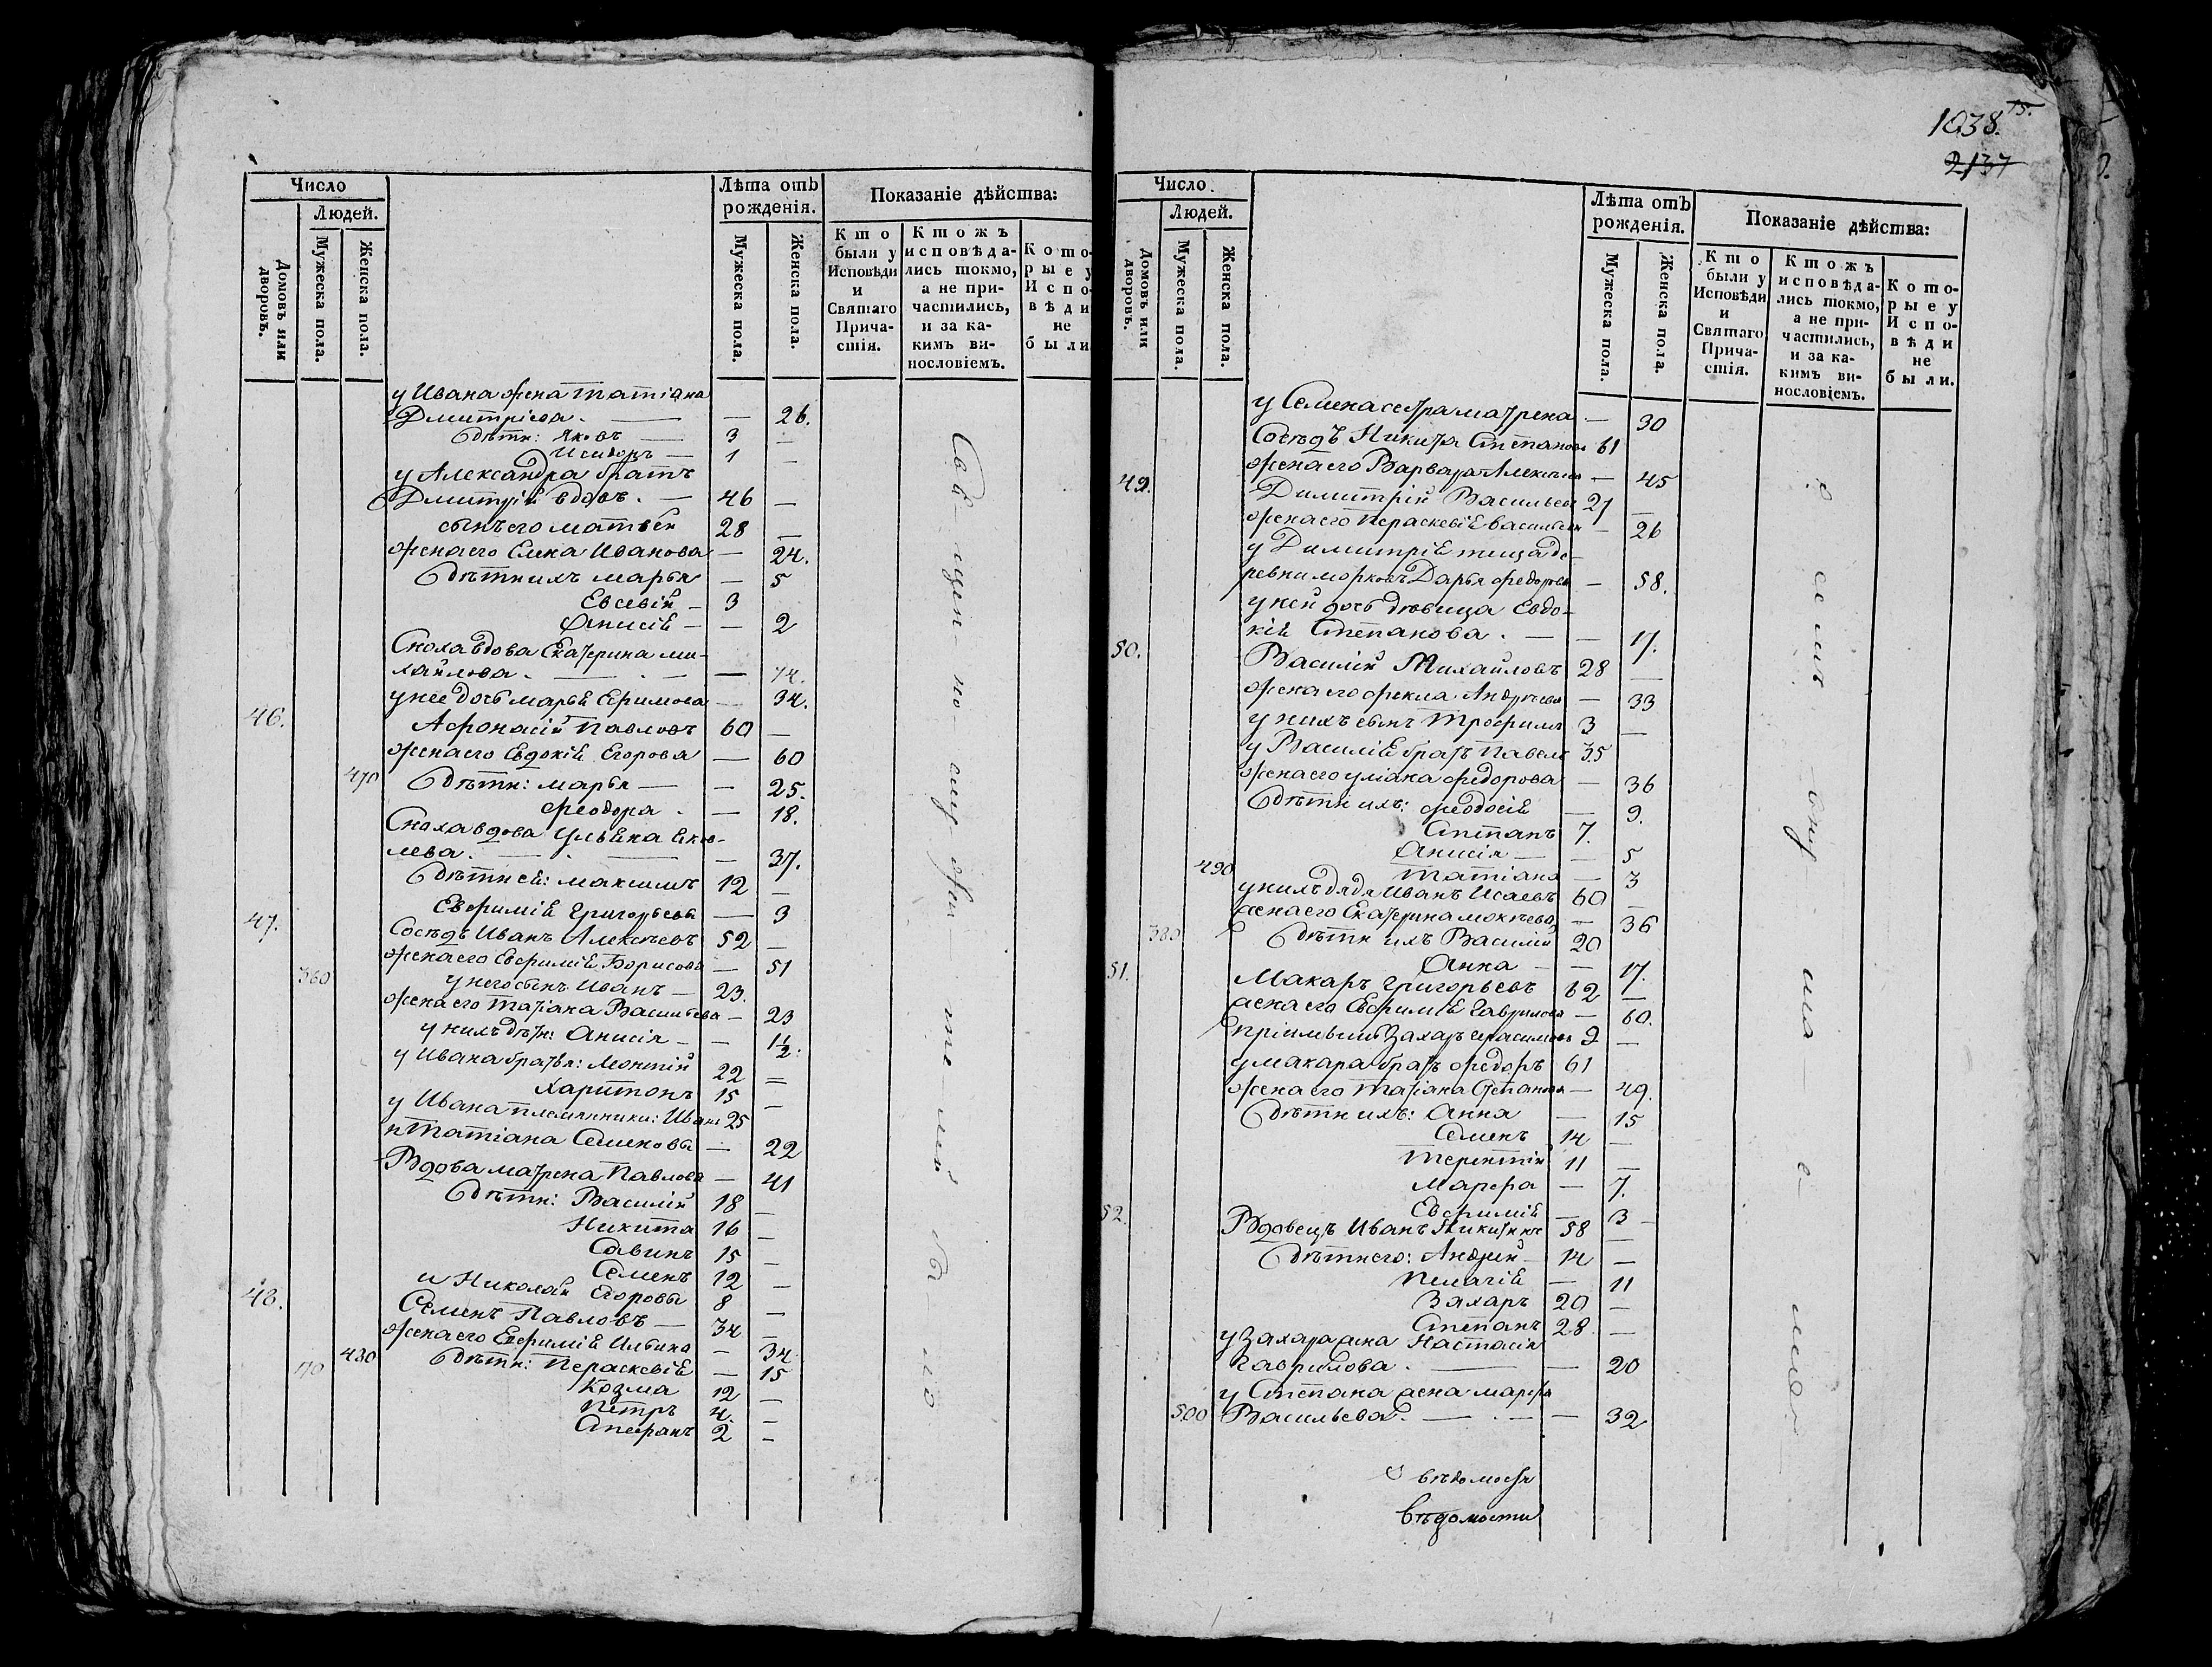 Число
Людей.
Домовъ или дворовъ.
Мужеска пола.
Женска пола.
Лѣта отъ рожденія.
Мужеска пола.
Женска пола.
Показаніе дѣйства:
Кто были у Исповѣди и Святаго Причастія.
Ктожъ исповѣдались токмо, а не причастились, и за какимъ винословіемъ.
Которые у Исповѣди не были
у Ивана жена Татіана
Дмитріева. — — 26.
Дѣти: Яковъ — 3 —
Исидоръ — 1 —
у Александра братъ
Дмитрій вдовъ. — 46 —
сынъ его Матвей 28 —
жена его Елена Иванова — 24.
Дѣти ихъ Марья — 5
Евсевій — 3
Анисіѣ — — 2
Сноха вдова Екатерина Ми-
хайлова. — — 74.
у нее дочь Марья Ефимова — 34.
46. Афонасій Павловъ 60 —
жена его Евдокіѣ Егорова — 60
470 Дѣти: Марья — — 25.
Феодора. — 18.
Сноха вдова Ульяна Яков-
лева. — — 37.
Дѣти ей: Максимъ 12 —
Евфиміѣ Григорьевы — 3
47. Сосѣдъ Иванъ Алексѣевъ 52 —
жена его Евфиміѣ Борисова — 51
360 у него сынъ Иванъ — 23.
жена его Татіана Васильева — 23
у нихъ дѣти: Анисія — — 1½:
у Ивана братья: Леонтій 22 —
Харитонъ 15 —
у Ивана племянники: Иванъ 25
и Татіана Семеновы — 22
Вдова Матрена Павлова — 41
Дѣти: Василій 18 —
Никита 16 —
Савинъ 15 —
Семенъ 12 —
и Николай Егоровы 8 —
48. Семенъ Павловъ — 34 —
жена его Евфиміѣ Ильина — 34
70 480 Дѣти: Параскевіѣ — 15
Козма 12 —
Петръ 4. —
Стефанъ 2 —
1038. 15.
2137
Число
Людей.
Домовъ или дворовъ.
Мужеска пола.
Женска пола.
Лѣта отъ рожденія.
Мужеска пола.
Женска пола.
Показаніе дѣйства:
Кто были у Исповѣди и Святаго Причастія.
Ктожъ исповѣдались токмо, а не причастились, и за какимъ винословіемъ.
Которые у Исповѣди не были.
у Семена сестра Матрена — 30
Сосѣдъ Никита Степановъ 61
жена его Варвара — 45
49. Димитрій Васильевъ 21 —
жена его Параскевіѣ Васильева — 26
у Димитріѣ теща де-
ревни Дарья Федорова — 58.
у ней дочь дѣвица Евдо-
кіѣ Степанова. — — 17.
50. Василій Михайловъ 28 —
жена его Фекла Андреева — 33
у нихъ сынъ Трофимъ 3 —
у Василіѣ братъ Павелъ 35
жена его Уліана Федорова — 36
Дѣти ихъ: Феодосіѣ — 9.
Степанъ 7.
Анисія — — 5
490 Татіана — 3
у нихъ дядя Иванъ Исаевъ 60 —
жена его Екатерина — 36
380 Дѣти ихъ Василій 20
Анна — — 17.
51. Макаръ Григорьевъ 62 —
жена его Евфиміѣ Гаврилова — 60.
Пріимышъ Захаръ Герасимовъ 9 —
у Макара братъ Федоръ 61
жена его Татіана Степанова — 49.
Дѣти ихъ: Анна — 15
Семенъ 14 —
Терентій 11 —
Марфа — 7.
Евфиміѣ — 3 —
52. Вдовецъ Иванъ Никитинъ 58
Дѣти его: Андрей — 14 —
Пелагіѣ — 11
Захаръ 20 —
Степанъ 28 —
у Захара жена Настасія
Гаврилова. — — 20
у Степана жена Марфа
500 Васильева. — — 32
вѣдомость
вѣдомости